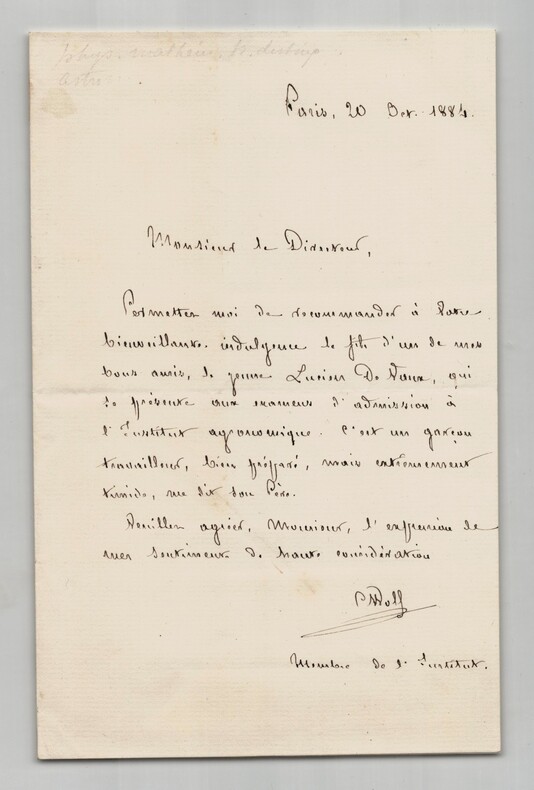 Paris, 20 Oct. 1884.
Monsieur le Directeur,
Permettez moi de recommander à Votre
bienveillante indulgence le fils d'un de mes
bons amis, le jeune Lucien De Vaux, qui
se présente aux examens d'admission à
l'Institut agronomique. C'est un garçon
travailleur, bien préparé, mais extrêmement
timide, me dit son Père.
Veuillez agréer, Monsieur, l'expression de
mes sentiments de haute considération
CWolf
Membre de l'Institut.